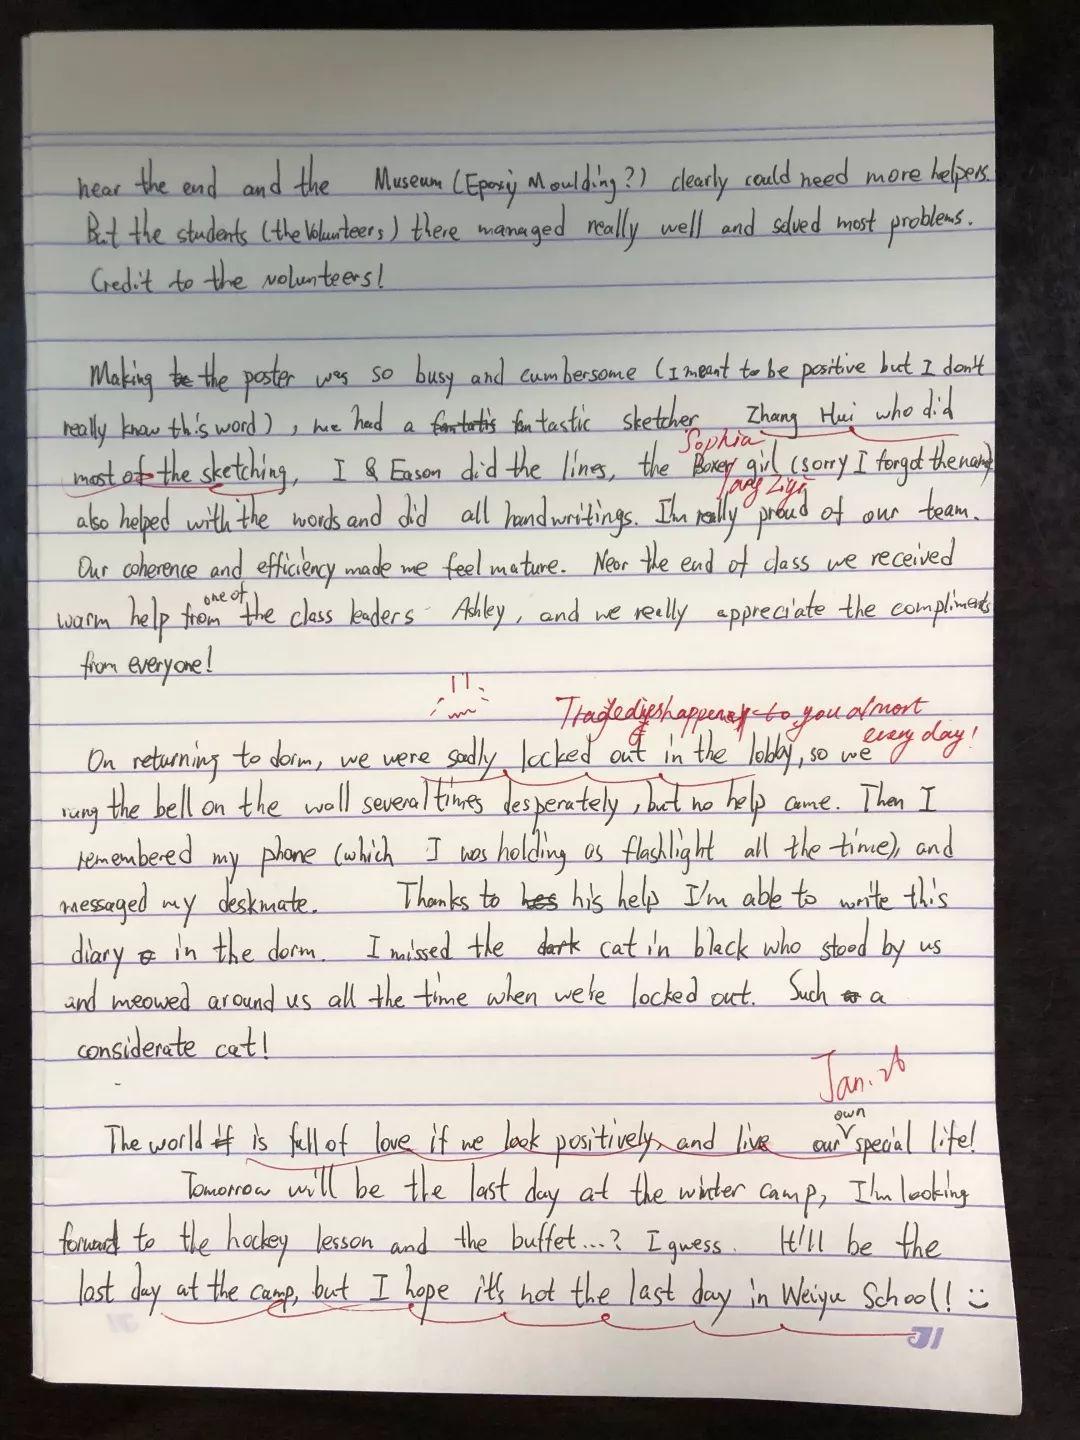 near the end and the Museum (Epoxy Moulding?) clearly could need more helpers.
But the students (the Volunteers) there managed really well and solved most problems.
Credit to the volunteers!
Making the poster was so busy and cumbersome (I meant to be positive but I don't
really know this word), we had a fantastic sketcher Zhang Hui who did
Sophia
most of the sketching, I & Eason did the lines, the Boxer girl (sorry I forgot the name)
also helped with the words and did all handwritings. I'm really proud of our team.
Our coherence and efficiency made me feel mature. Near the end of class we received
one of
warm help from the class leaders Ashley, and we really appreciate the compliments
from everyone!
Tragedies happened to you almost
every day!
On returning to dorm, we were sadly locked out in the lobby, so we
rung the bell on the wall several times desperately, but no help came. Then I
remembered my phone (which I was holding as flashlight all the time), and
messaged my deskmate. Thanks to his help I'm able to write this
diary in the dorm. I missed the cat in black who stood by us
and meowed around us all the time when we're locked out. Such a
considerate cat!
Jan. 26
own
The world is full of love if we look positively, and live our special life!
Tomorrow will be the last day at the winter camp, I'm looking
forward to the hockey lesson and the buffet...? I guess. It'll be the
last day at the camp, but I hope it's not the last day in Weiyu School!